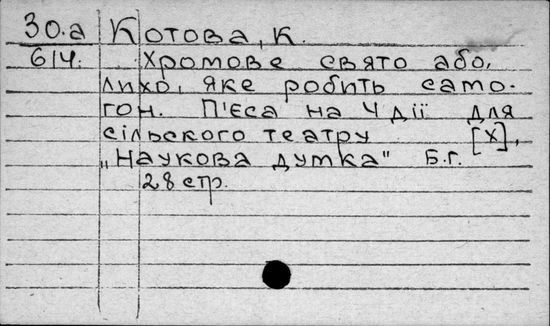 30.а Котова, К.
614. Хромове свято або,
лихо, яке робить само-
гон. П'єса на 4 дії для
сільського театру [Х],
„Наукова думка" Б.г.
28 стр.